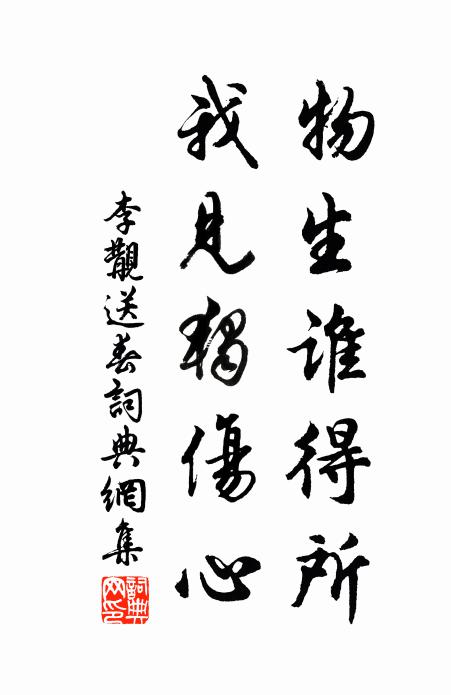 物生誰得所
我見獨傷心
李觀送春詞典網集
詞典網印